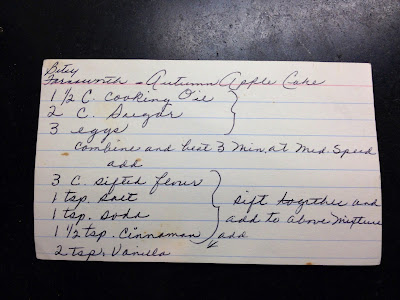 Betsy
Farnsworth - Autumn Apple Cake
1 1/2 C. Cooking Oil
2 C. Sugar
3 eggs
Combine and beat 3 Min. at Med. Speed
add
3 C. sifted flour
1 tsp. salt
1 tsp. soda
1 1/2 tsp. Cinnamon
sift together and
add to above Mixture
add
2 tsp. Vanilla